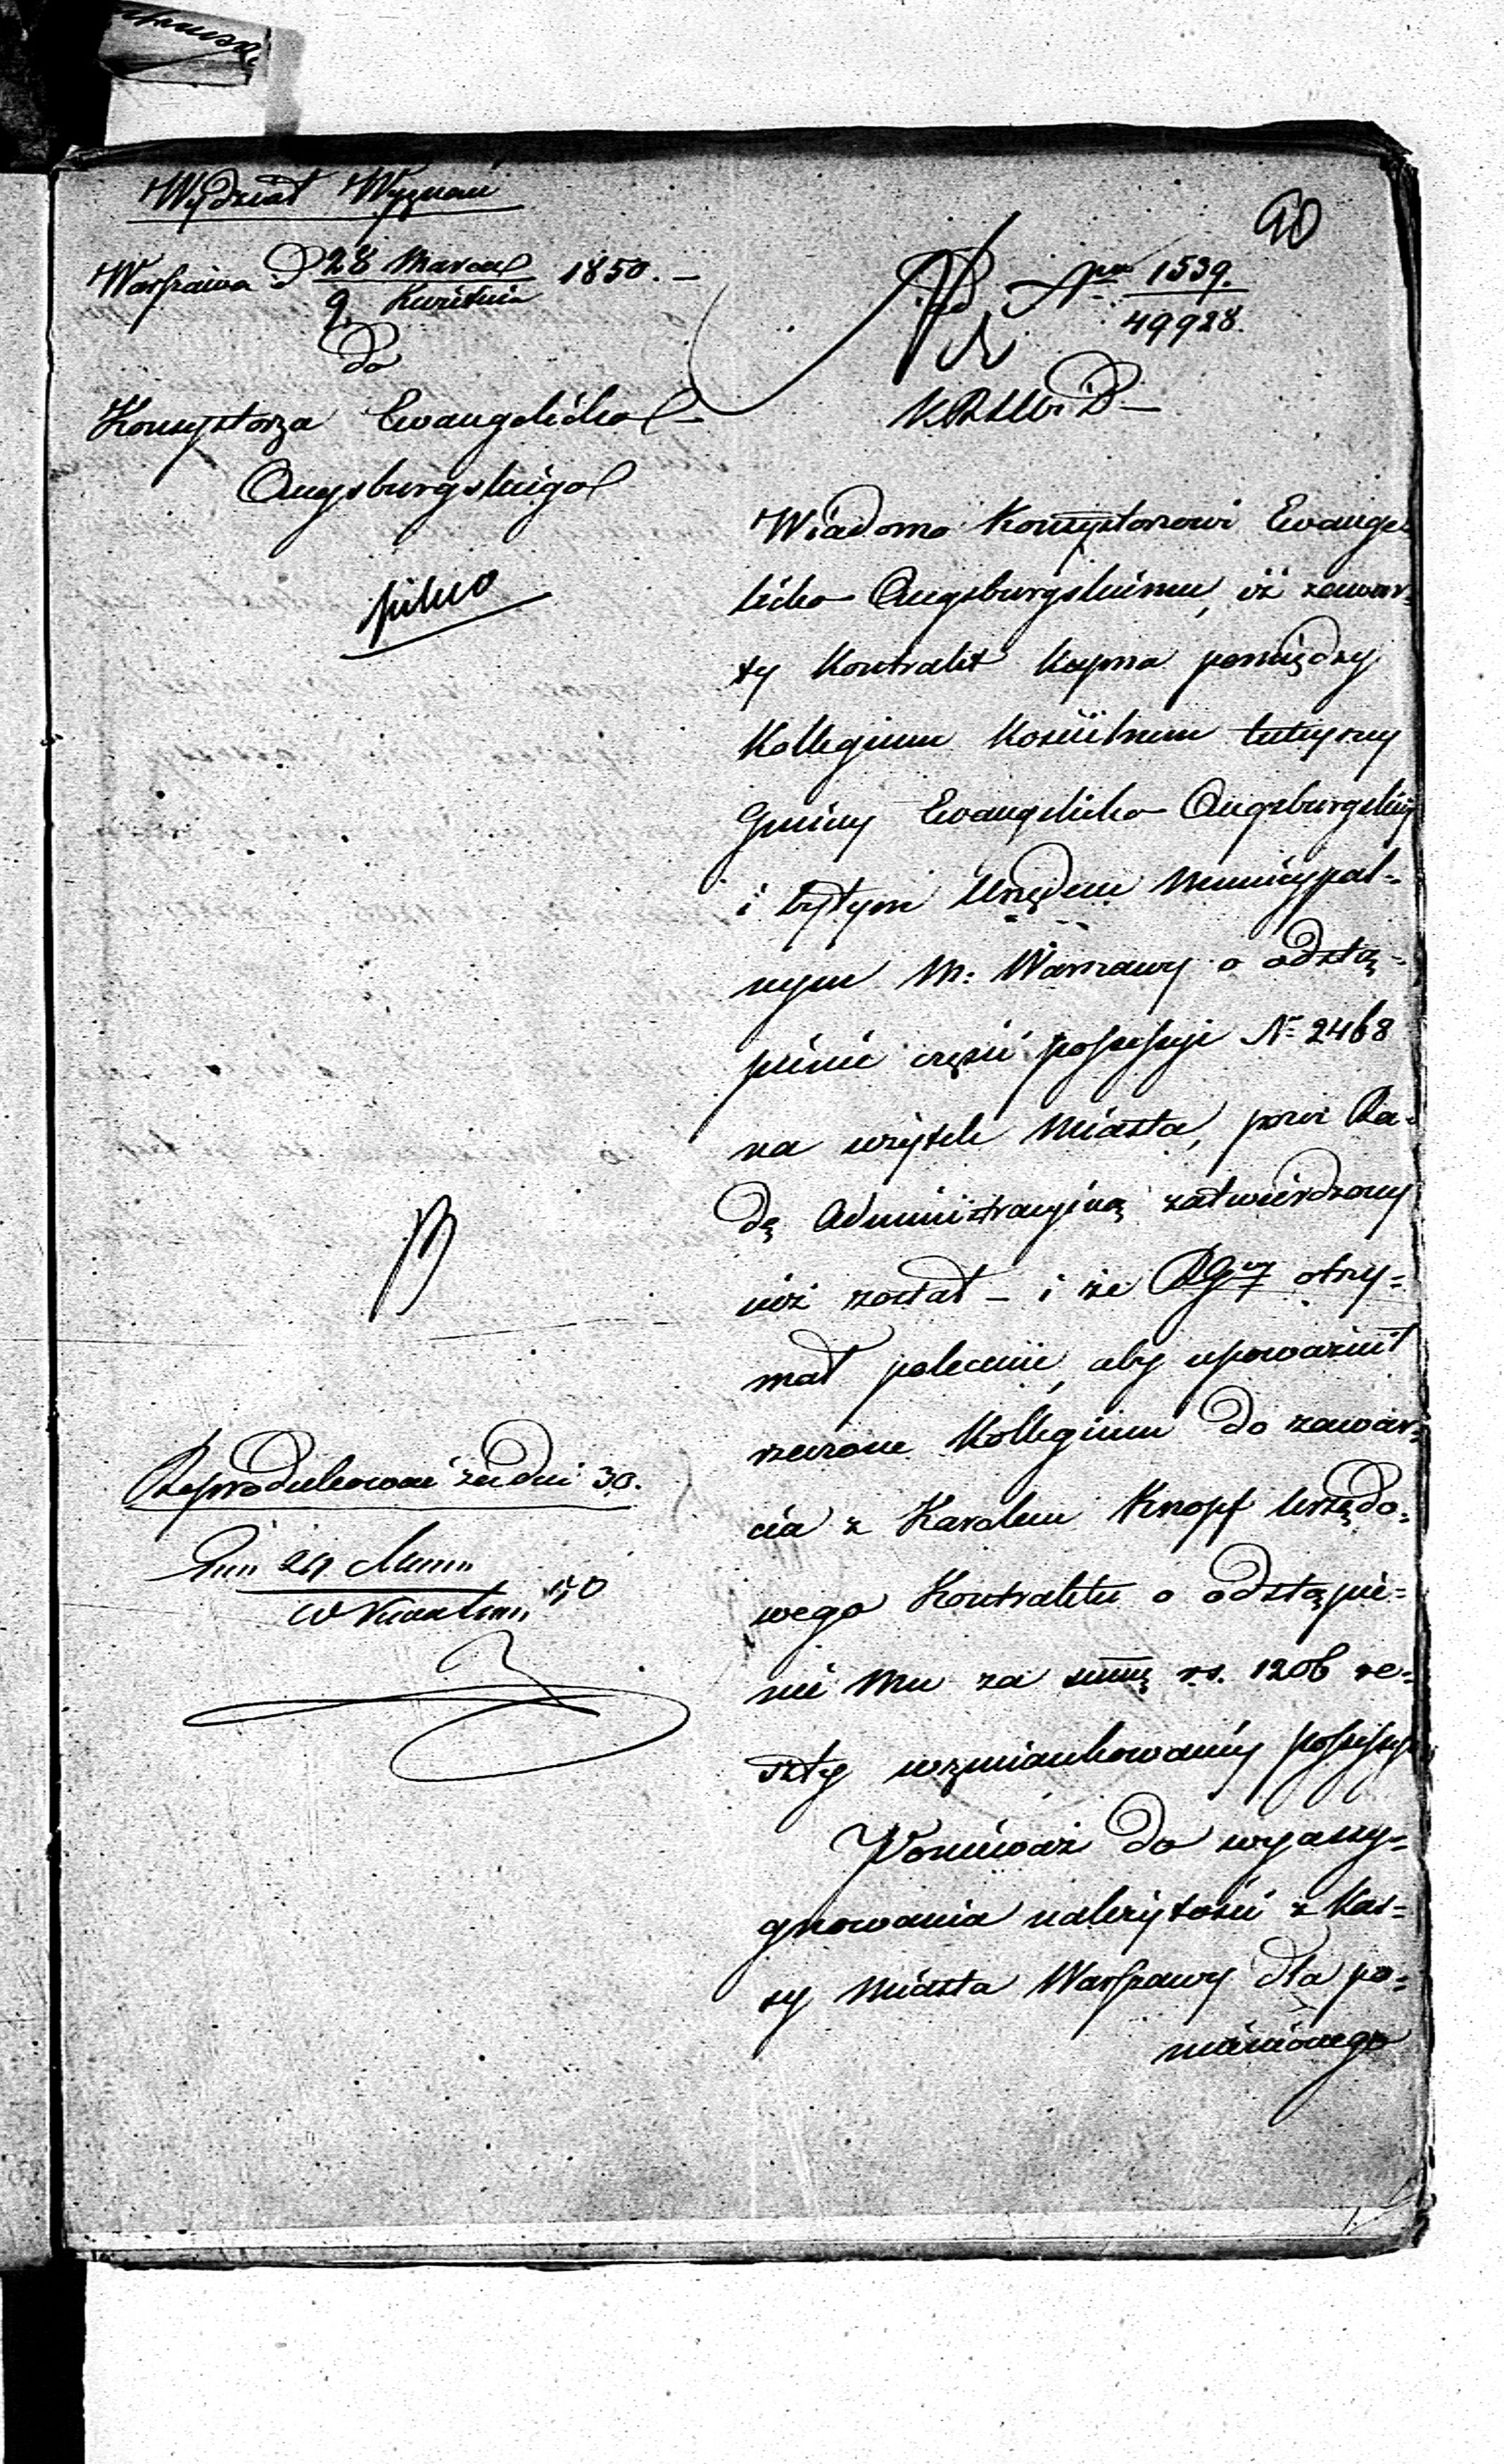 Wydział Wyznań
90
Warszawa d 28 Marca 1850. –
9 Kwietnia
1539.
49928.
do
Konsystorza Ewangelicko
Augsburgskiego
pilno
Wiadomo Konsystorzowi Ewange-
licko Augsburgskiemu, iż zawar-
ty Kontrakt kupna pomiędzy
Kollegium Kościelnem tutejszey
Gminy Ewangelicko Augsburgskiej
i byłym Urzędem Municypal-
nym M: Warszawy o odstą-
pienie części possessyi Nr 2468
na użytek Miasta, przez Ra-
dę Administracyjną zatwierdzony
już został – i że otrzy-
mał polecenie, aby upoważnił
rzeczone Kollegium do zawar-
cia z Karolem Knopf Urzędo-
wego Kontraktu o odstąpie-
nie Mu za summę rs. 1206 re-
szty wzmiankowaney possessyi
Ponieważ do wyassy-
gnowania należytości z Kas-
sy Miasta Warszawy dla po-
mienionego
Reprodukować za dni 30.